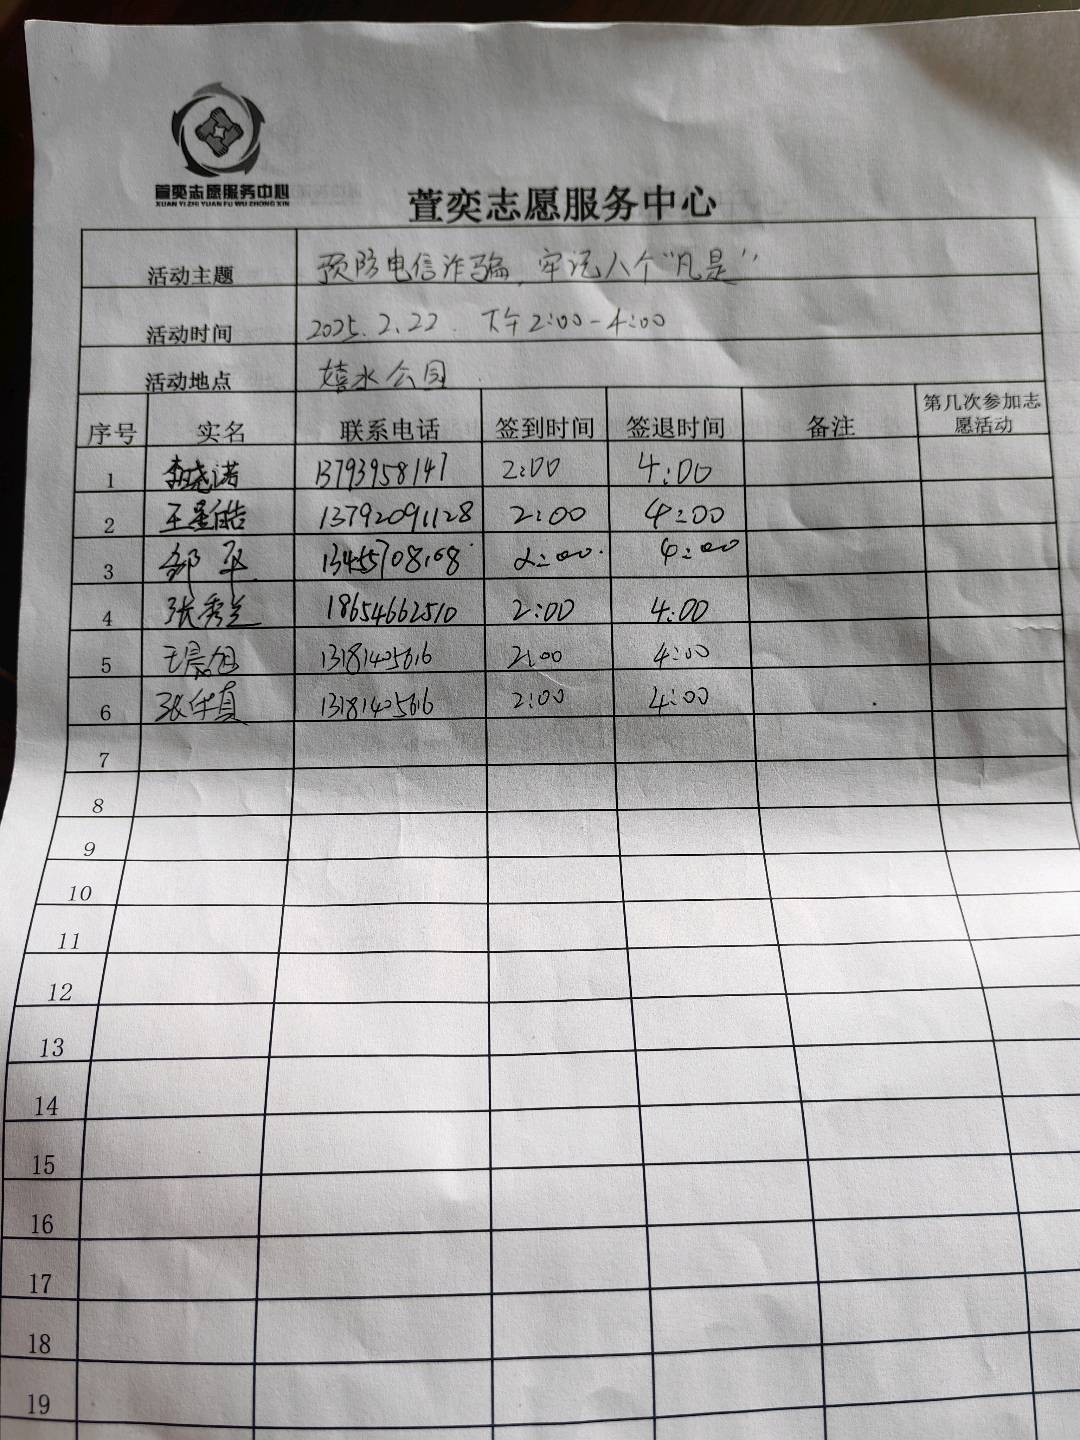 萱奕志愿服务中心
XUAN YI ZHI YUAN FU WU ZHONG XIN
萱奕志愿服务中心
活动主题 预防电信诈骗,牢记八个“凡是”
活动时间 2025.2.22. 下午2:00-4:00
活动地点 嬉水公园
序号 实名 联系电话 签到时间 签退时间 备注 第几次参加志愿活动
1 李晓诺 13793958147 2:00 4:00
2 王星皓 13792091128 2:00 4:00
3 邹平 13455708168 2:00 4:00
4 张秀兰 18654662510 2:00 4:00
5 王晨旭 13181405616 2:00 4:00
6 13181405616 2:00 4:00
7
8
9
10
11
12
13
14
15
16
17
18
19